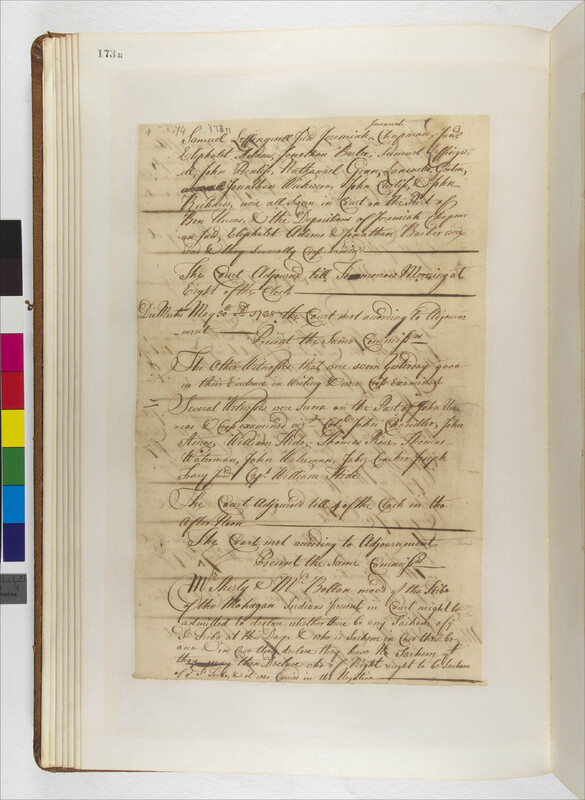 173n
74 173n
Samuel Leffingwell Jun Jeremiah Chapman, Jun
Eliphelet Adams, Jonathan Barber, Samuel Leffingw-
ell, John Prentis, Nathaniel Green,
Jonathan Wickwere, John Curtis, & John
Richards, were all Sworn in Court on the Part of
Ben Uncas, & the Depositions of Jeremiah Chapm-
an Jun, Eliphelet Adams & Jonathan Barber were
read & they Severally Cross examined
The Court Adjourned till Tomorrow Morning at
Eight of the Clock
Die Martis May 30th 1738 the Court met according to Adjourn-
ment
Present the Same Commissrs
The Other Witnesses that were sworn Yesterday gave
in their Evidence in Writing & were Cross Examined
Several Witnesses were Sworn on the Part of John Un-
cas & Cross examined Colo John Chandler, John
Ames, William Hide, Thomas Rose, Thomas
Waterman, John Waterman, Jabez Joseph
Tracy Junr Capt William Hide
The Court Adjourned till of the Clock in the
After Noon
The Court met according to Adjournment
Present the Same Commissrs
Mr Shirly & Mr Bollan moved if the Tribe
of the Mohagan Indians present in Court might be
admitted to declare whether there be any Sachem of
sd Tribe at this Day & who is Sachem in Case there be
one & in Case they declare they have No Sachem yt
they then Declare who of Right ought to be Sachem
of ye sd Tribe, & it was Carried in the Negative